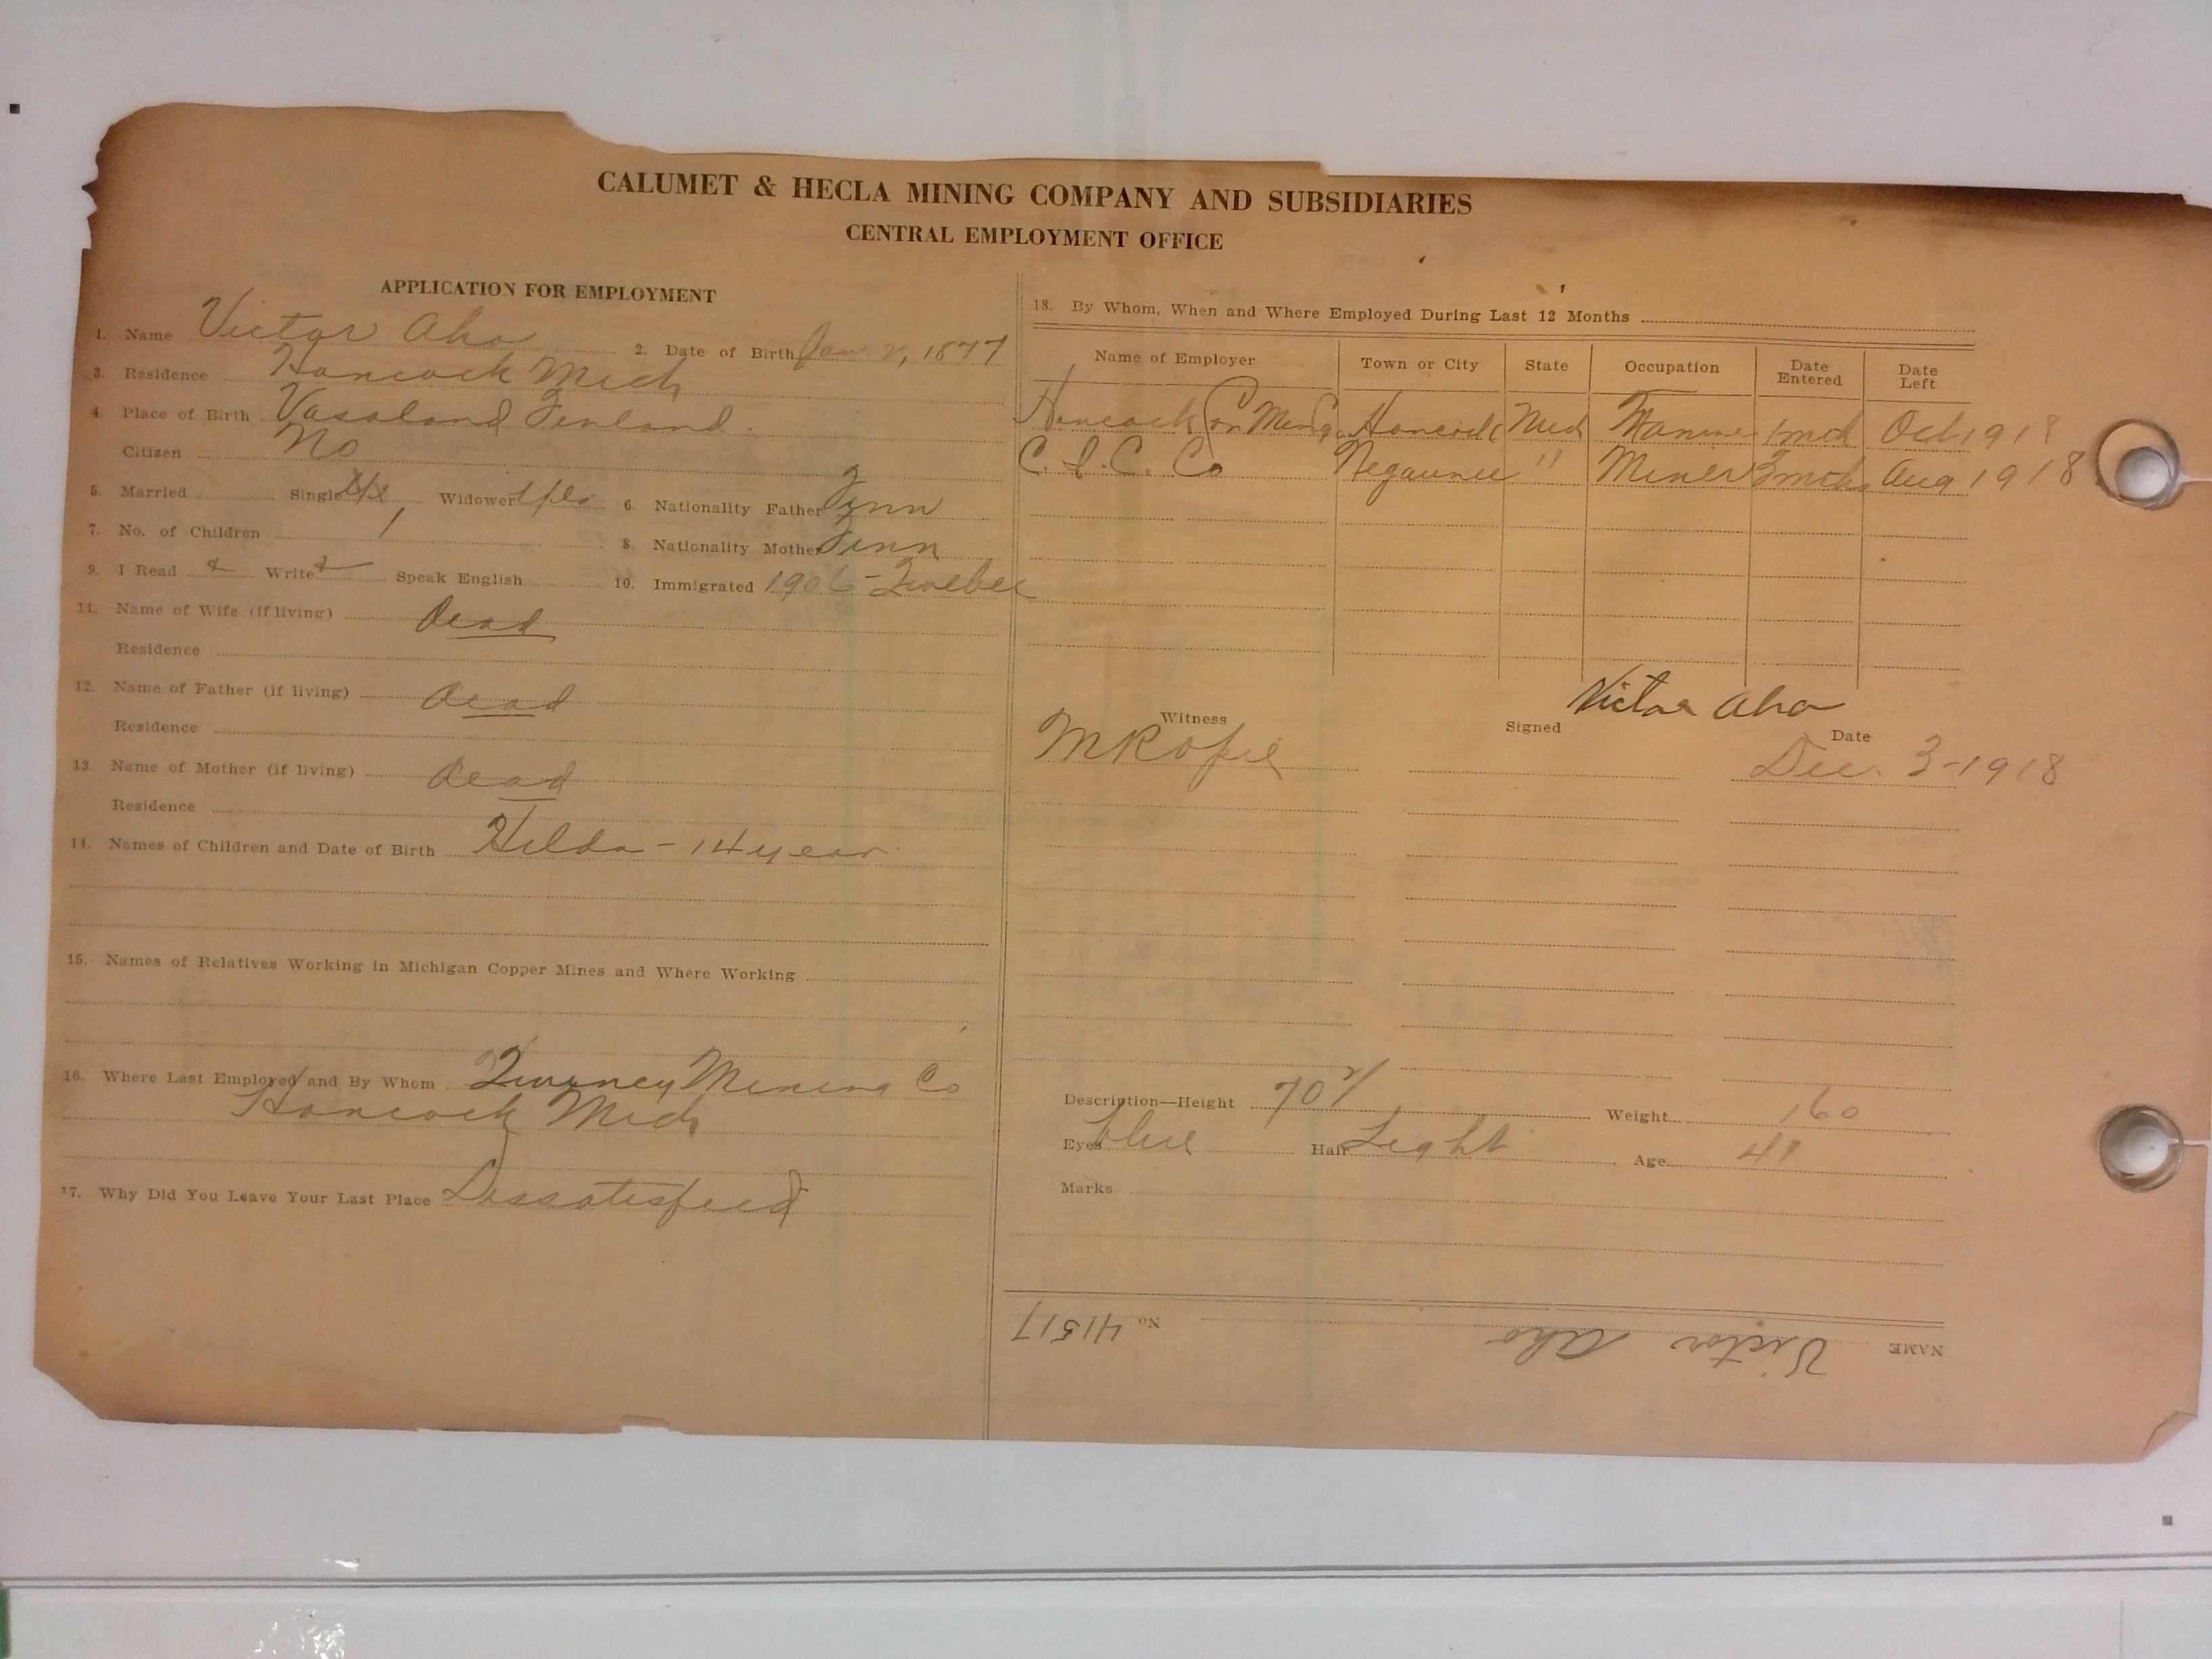 CALUMET & HECLA MINING COMPANY AND SUBSIDIARIES
CENTRAL EMPLOYMENT OFFICE
APPLICATION FOR EMPLOYMENT
1. Name Victor Aho 2. Date of Birth Jan 2, 1877
3. Residence Hancock Mich
4. Place of Birth Vasaland Finland
Citizen No
5. Married Single Widower 6. Nationality Father Finn
7. No. of Children 1 8. Nationality Mother Finn
9. I Read & Write Speak English 10. Immigrated 1906 - Quebec
11. Name of Wife (if living) Dead
Residence
12. Name of Father (if living) Dead
Residence
13. Name of Mother (if living) Dead
Residence
14. Names of Children and Date of Birth Hilda - 14 year
15. Names of Relatives Working in Michigan Copper Mines and Where Working
16. Where Last Employed and By Whom Quincy Mining Co
Hancock Mich
17. Why Did You Leave Your Last Place Dissatisfied
18. By Whom, When and Where Employed During Last 12 Months
Name of Employer Town or City State Occupation Date Entered Date Left
Hancock Con Min Co Hancock Mich 1 mch Oct 1918
C. I. C. Co Negaunee " Miner 3 mchs Aug 1918
Witness Signed Victor Aho Date
Dec. 3 - 1918
Description—Height 70 Weight 160
Eyes blue Hair Light Age 41
Marks
NAME Victor Aho No 41517